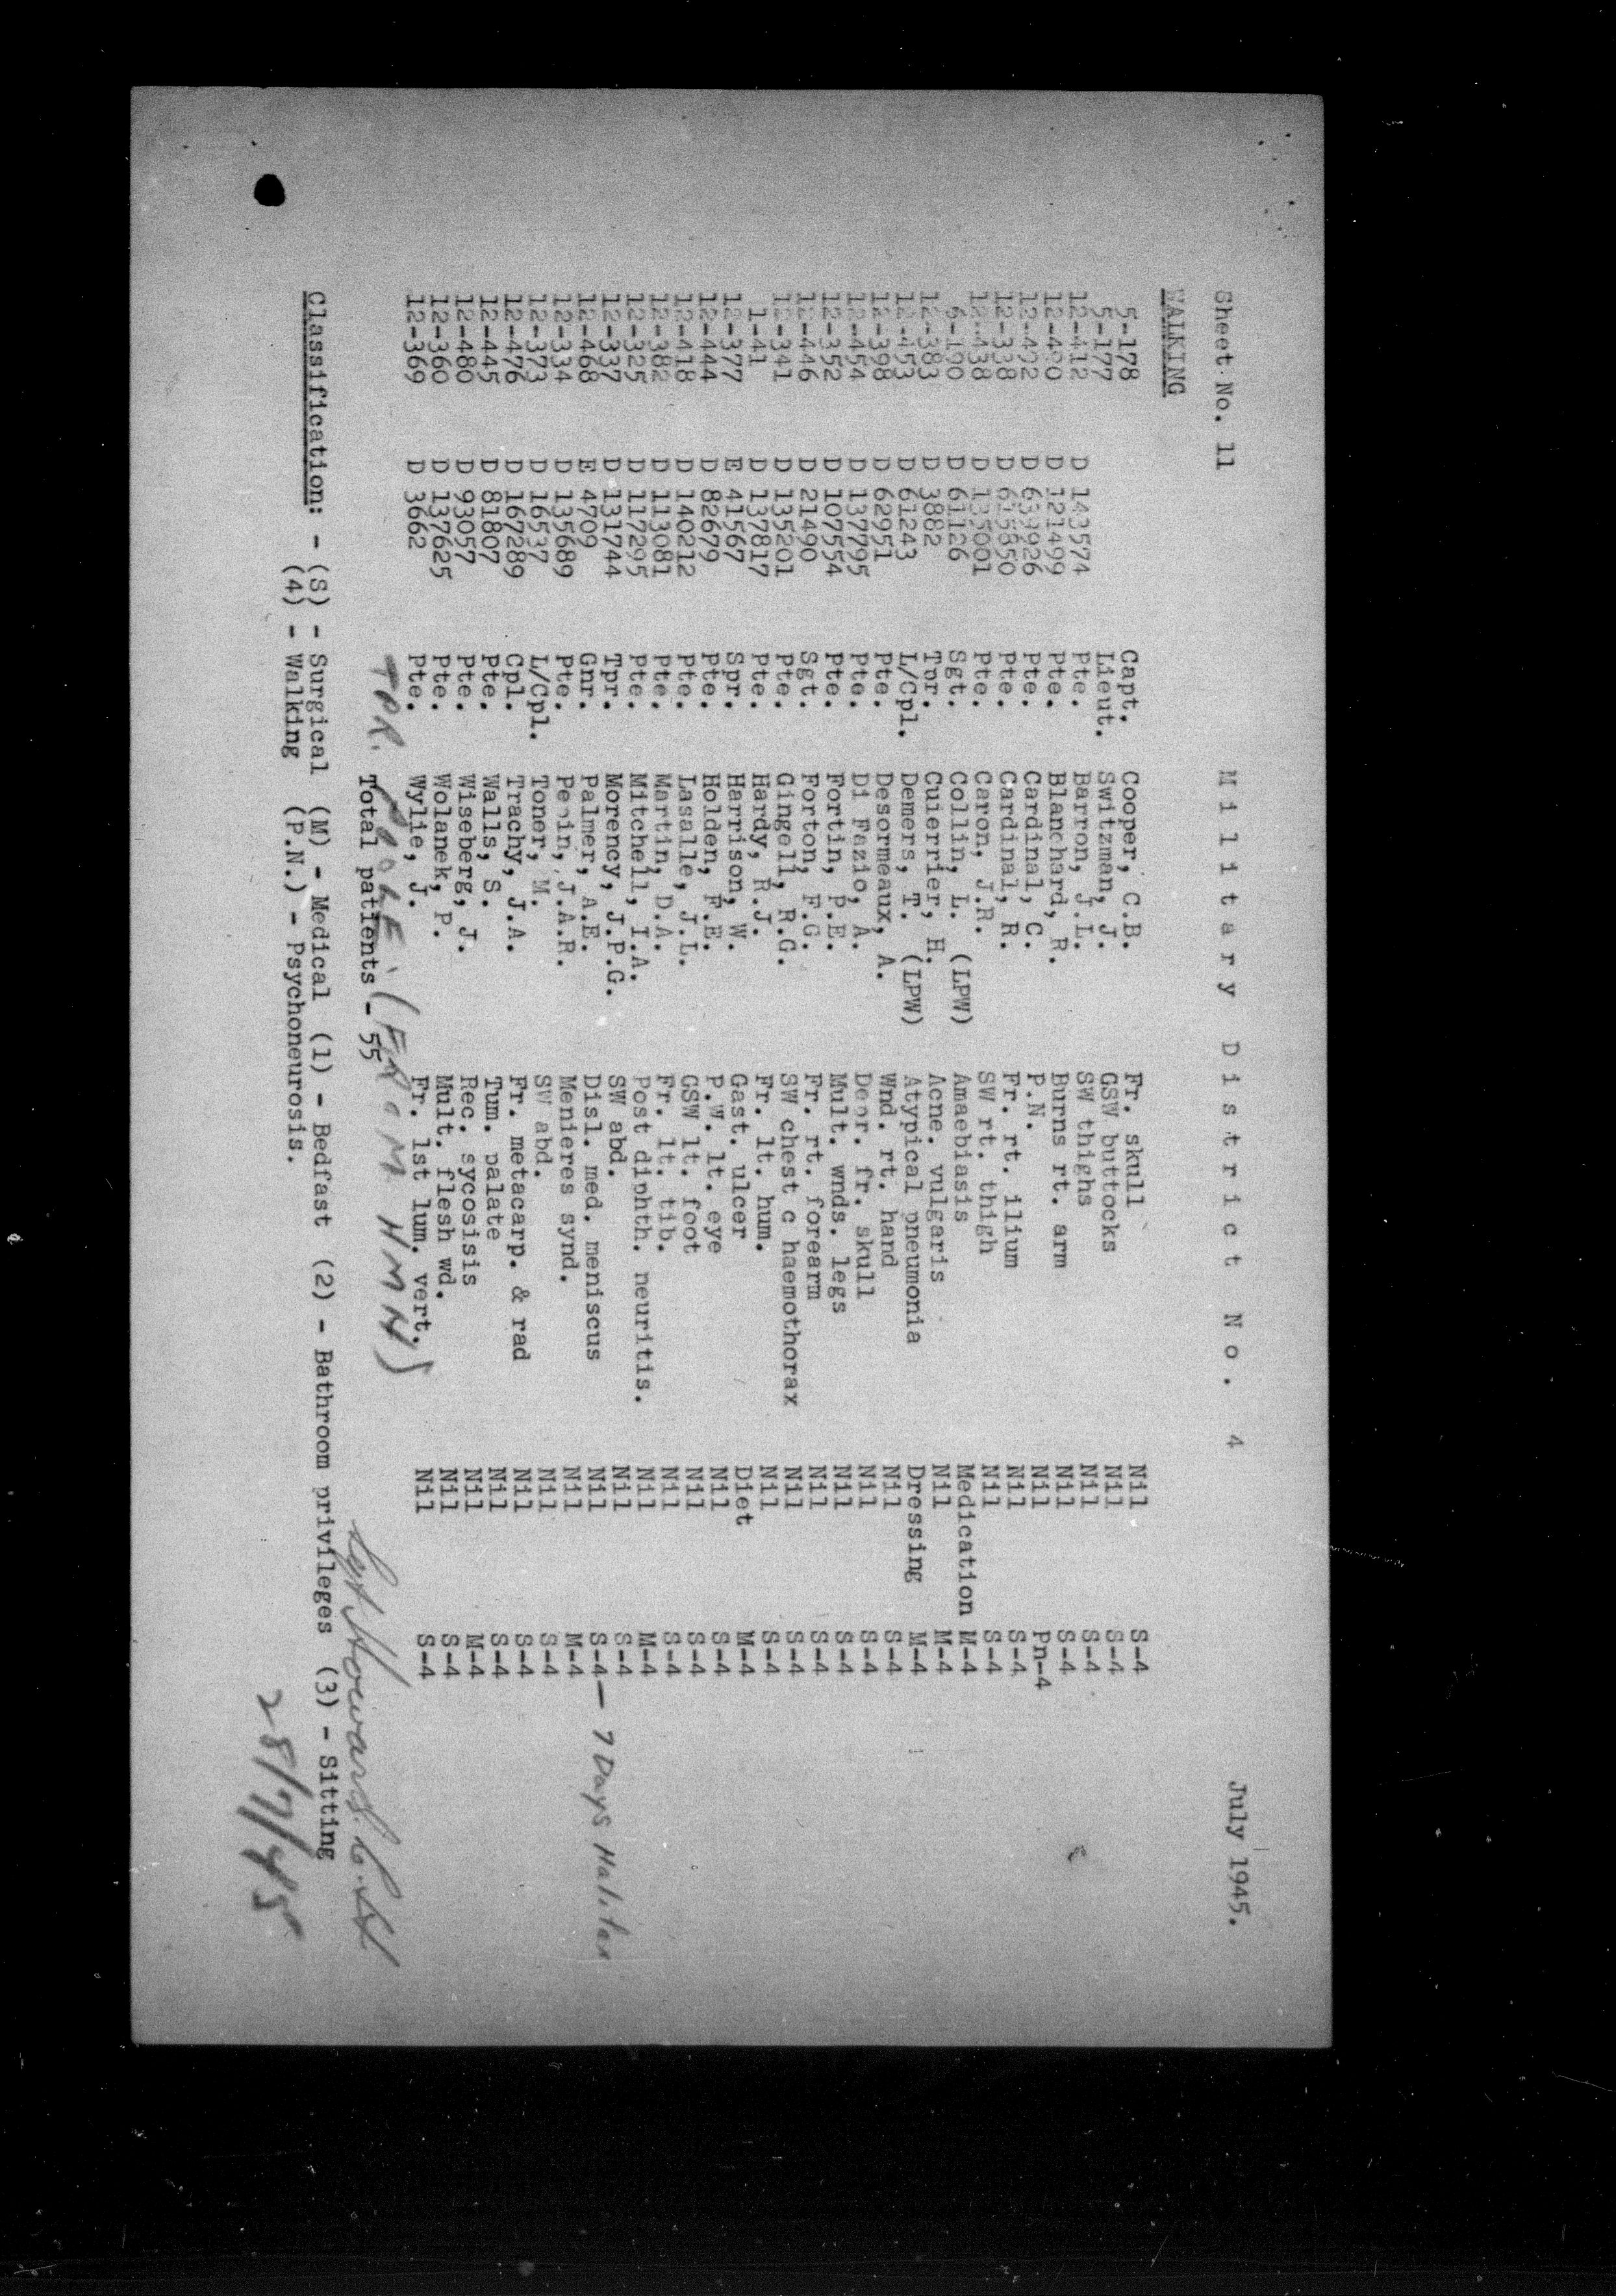 Sheet No. 11 Military District No. 4 July 1945.
WALKING
5-178 Capt. Cooper, C.B. Fr. skull Nil S-4
5-177 Lieut. Switzman, J. GSW buttocks Nil S-4
12-412 D 143574 Pte. Barron, J.L. SW thighs Nil S-4
12-420 D 121499 Pte. Blanchard, R. Burns rt. arm Nil S-4
12-422 Pte. Cardinal, C. P.N. Nil Pn-4
12-338 Pte. Cardinal, R. Fr. rt. ilium Nil S-4
12-438 D 135001 Pte. Caron, J.R. SW rt. thigh Nil S-4
5-190 D 61126 Sgt. Collin, L. (LPW) Amaebiasis Medication M-4
12-383 D 3882 Tpr. Cuierrier, H. Acne. vulgaris Nil M-4
12-453 D 61243 L/Cpl. Demers, T. (LPW) Atypical pneumonia Dressing M-4
12-398 D 62951 Pte. Desormeaux, A. Wnd. rt. hand Nil S-4
12-454 D 137795 Pte. Di Fazio, A. Depr. fr. skull Nil S-4
12-352 D 107554 Pte. Fortin, P.E. Mult. wnds. legs Nil S-4
12-446 D 21490 Sgt. Forton, F.G. Fr. rt. forearm Nil S-4
12-341 D 135201 Pte. Gingell, R.G. SW chest c haemothorax Nil S-4
1-41 D 137817 Pte. Hardy, R.J. Fr. lt. hum. Nil S-4
12-377 E 41567 Spr. Harrison, W. Gast. ulcer Diet M-4
12-444 D 82679 Pte. Holden, F.E. P.W. lt. eye Nil S-4
12-418 D 140212 Pte. Lasalle, J.L. GSW lt. foot Nil S-4
12-382 D 113081 Pte. Martin, D.A. Fr. lt. tib. Nil S-4
12-325 D 117295 Pte. Mitchell, I.A. Post diphth. neuritis. Nil M-4
12-337 D 131744 Tpr. Morency, J.P.G. SW abd. Nil S-4
12-468 E 4709 Gnr. Palmer, A.E. Disl. med. meniscus Nil S-4 — 7 Days Halifax
12-334 D 135689 Pte. Pepin, J.A.R. Menieres synd. Nil M-4
12-373 D 16537 L/Cpl. Toner, M. SW abd. Nil S-4
12-476 D 167289 Cpl. Trachy, J.A. Fr. metacarp. & rad Nil S-4
12-445 D 81807 Pte. Walls, S. Tum. palate Nil S-4
12-480 D 93057 Pte. Wiseberg, J. Rec. sycosisis Nil M-4
12-360 D 137625 Pte. Wolanek, P. Mult. flesh wd. Nil S-4
12-369 D 3662 Pte. Wylie, J. Fr. 1st lum. vert. Nil S-4
TPR. (FROM HMH)
Total patients - 55
Classification: - (S) - Surgical (M) - Medical (1) - Bedfast (2) - Bathroom privileges (3) - Sitting
(4) - Walking (P.N.) - Psychoneurosis.
28/7/45